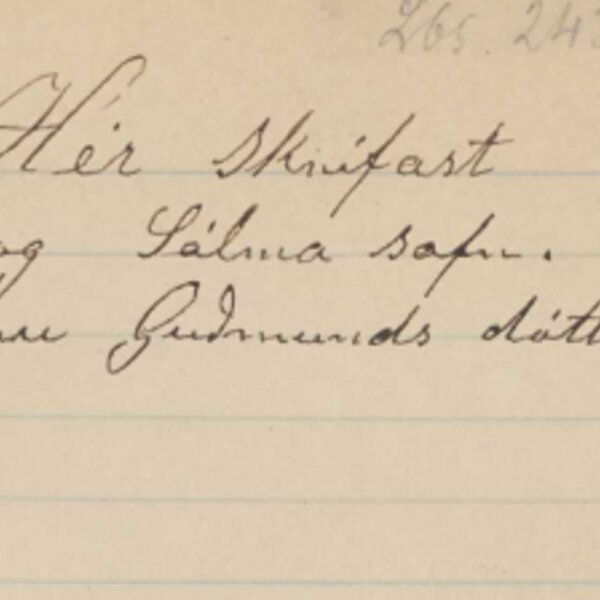 Lbs. 243
Hér skrifast
og Sálma safn.
Guðmunds dótt